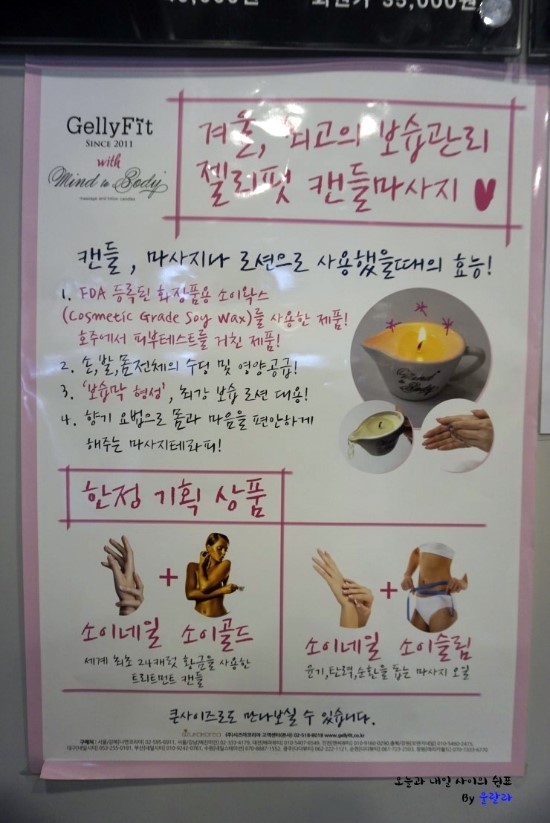 최신기 35,000원
GellyFit
SINCE 2011
with
Mind to Body
massage and lotion candles
겨울, 최고의 보습관리
젤리핏 캔들마사지
캔들, 마사지나 로션으로 사용했을때의 효능!
1. FDA 등록된 화장품용 소이왁스
(Cosmetic Grade Soy Wax)를 사용한 제품!
호주에서 피부테스트를 거친 제품!
2. 손,발,몸전체의 수딩 및 영양공급!
3. '보습막 형성', 최강 보습 로션 대용!
4. 향기 요법으로 몸과 마음을 편안하게
해주는 마사지테라피!
Mind to Body
한정 기획 상품
+
+
소이네일 소이골드
세계 최초 24캐럿 황금을 사용한
트리트먼트 캔들
소이네일 소이슬림
윤기,탄력,순환을 돕는 마사지 오일
큰사이즈로도 만나보실 수 있습니다.
오늘과 내일 사이의 쉼표
By 울랄라